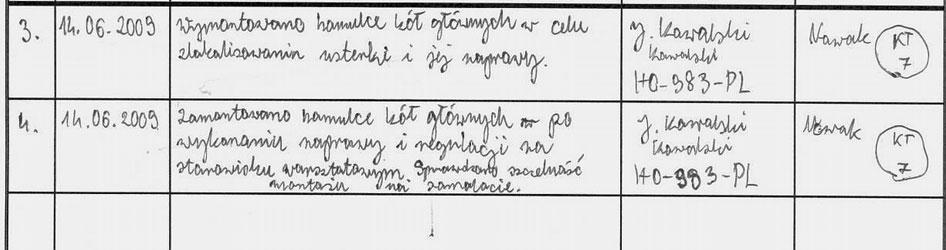 3. 14.06.2009 Wymontowano hamulce kół głównych w celu J. Kowalski Nowak KT
zlokalizowania usterki i jej naprawy. Kowalski 7
HO-983-PL
4. 14.06.2009 Zamontowano hamulce kół głównych po J. Kowalski Nowak KT
wykonaniu naprawy i regulacji na Kowalski 7
stanowisku warsztatowym. Sprawdzono szczelność HO-983-PL
montażu na samolocie.